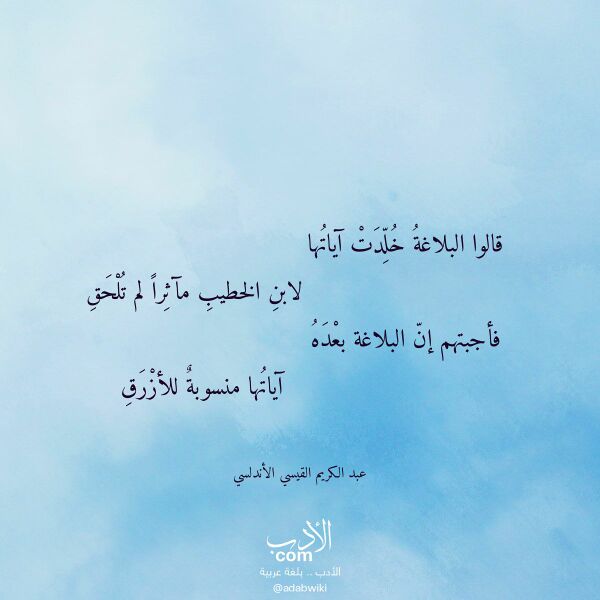 قالوا البلاغةُ خُلِّدَتْ آياتُها
لابنِ الخطيبِ مآثِراً لم تُلْحَقِ
فأجبتهم إنّ البلاغة بعْدَهُ
آياتُها منسوبةٌ للأزْرَقِ
عبد الكريم القيسي الأندلسي
الأدب
com
الأدب .. بلغة عربية
@adabwiki